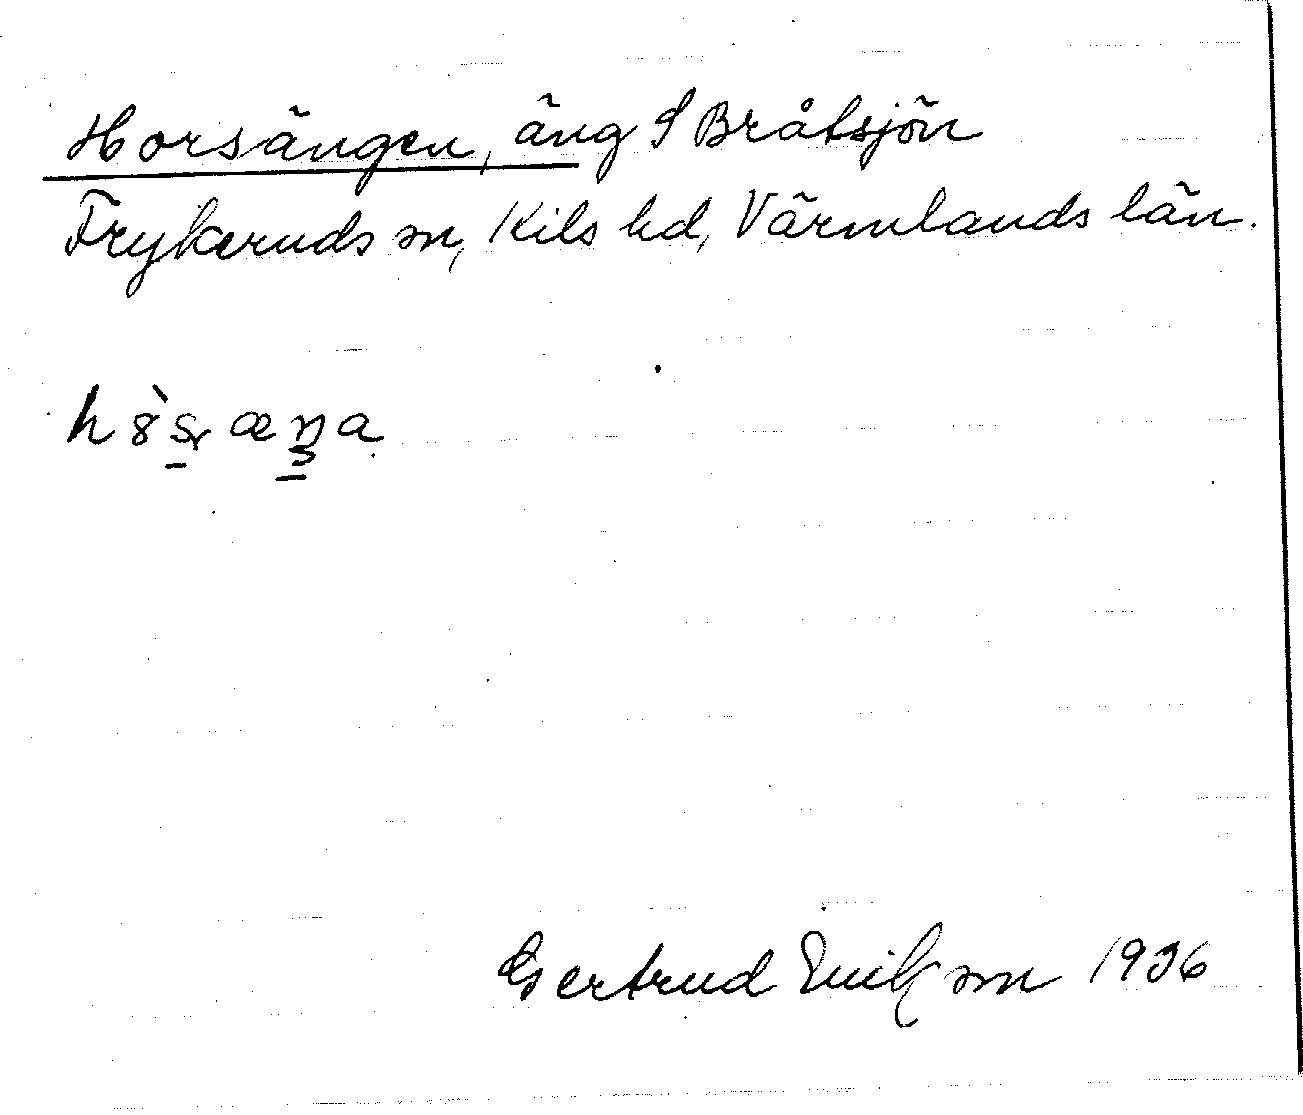 Horsängen, äng S Bråtsjön
Frykeruds sn, Kils hd, Värmlands län.
Gertrud Eriksson 1936